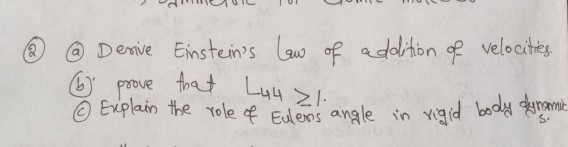 ② ⓐ Derive Einstein's law of addition of velocities.
ⓑ prove that L44 ≥ 1.
ⓒ Explain the role of Eulers angle in rigid body dynamics.